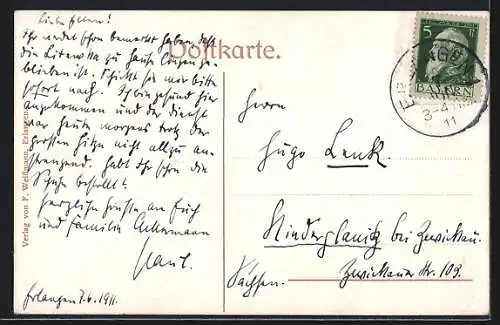 Liebe Eltern!
Ihr werdet schon bemerkt haben, daß
die Litewka zu Hause liegen ge-
blieben ist. Schickt sie mir bitte
sofort nach. Ich bin gesund hier
angekommen und der Dienst
war heute morgens trotz der
großen Hitze nicht allzu an-
strengend. Habt Ihr schon die
Schuhe bestellt?
Herzliche Grüße an Euch
und Familie Ackermann
Erlangen 7.6.1911.
Verlag von F. Erlangen
Postkarte.
5
BAYERN
ERLANGEN
3-4
11
Herrn
Hugo Lenk.
Niederplanitz bei Zwickau.
Zwickauer Str. 109.
Sachsen.